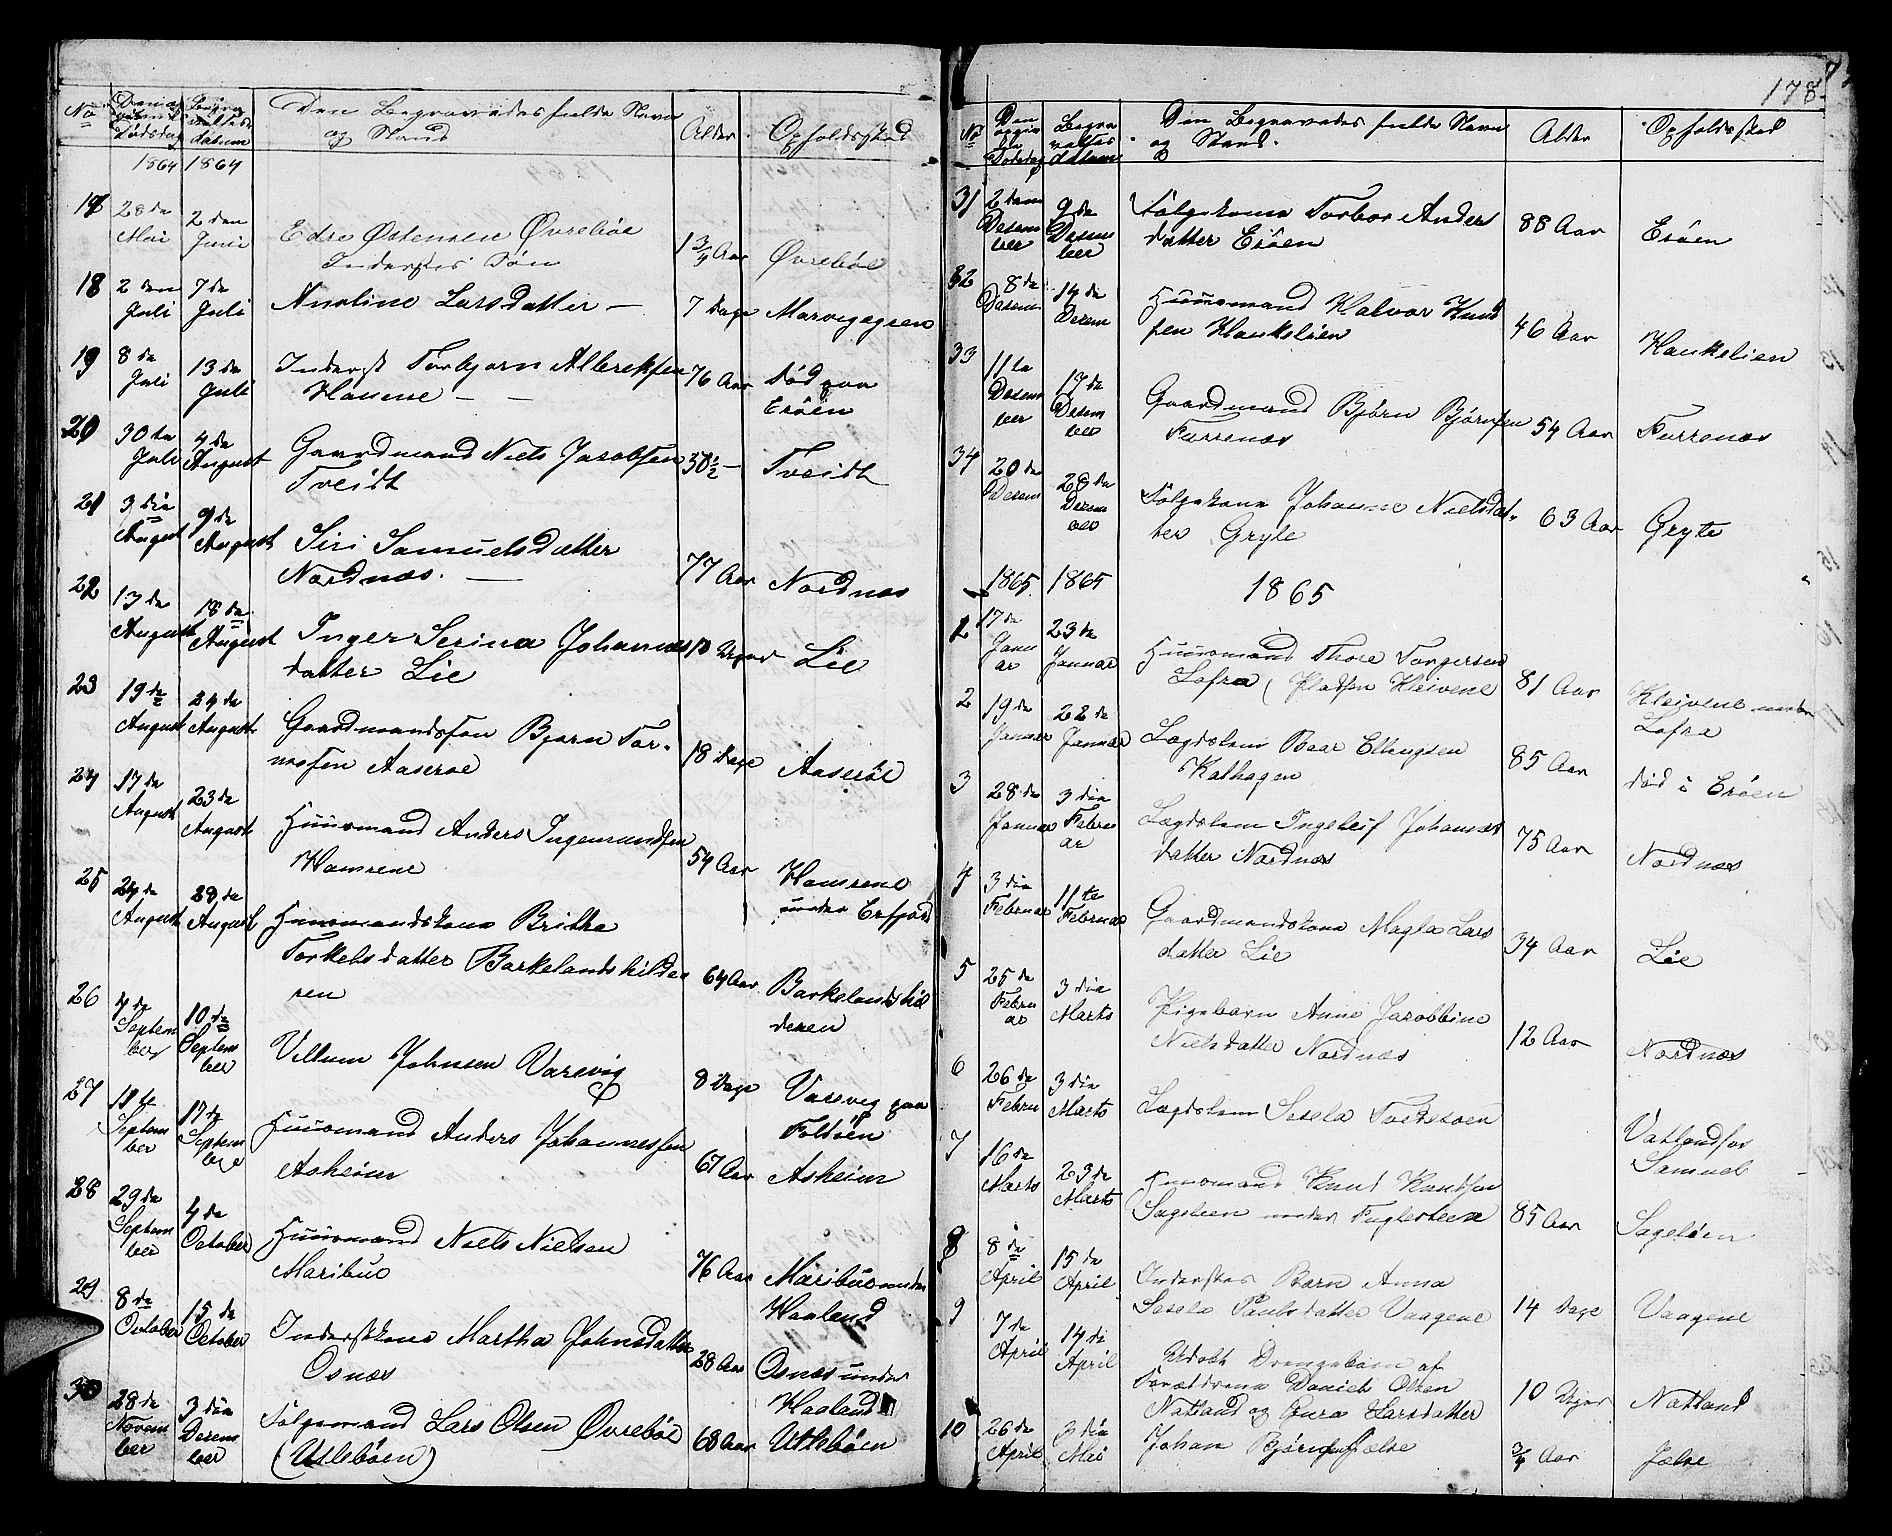 No
Den Begravedes fulde Navn
og Stand
Alder
Opholdssted
1864 1864
17 28de Mai 2den Juni
Edre Østensen Øvrebøe 1 3/4 Aar Øvrebøe
Inderstes Søn
18 2den Juli 7de Juli Nicoline Larsdatter — 7 Dage Marvigagsen
19 8de Juli 13de Juli Inderst Torbjørn Albrektsen 76 Aar død paa
Hauene — — Erøen
20 30te Juli 4de August Gaardmand Niels Jacobsen 30 1/2 — Tveidt
Tveidt
21 3die August 9de August Siri Samuelsdatter 77 Aar Nordnæs
Nordnæs. —
22 13de August 18de August Inger Serina Johannes 10 Uger Lie
datter Lie
23 19de August 24de August Gaardmandssøn Bjørn Tor-
mosen Aaserøe 18 Dage Aaserøe
24 17de August 23de August Huusmand Anders Ingemundsen
Hamrene 54 Aar Hamrene
under Erfjord
25 24de August 28de August Huusmandskone Britha
Torkelsdatter Barkelandshilde 64 Aar Barkelandshil
ren deren
26 4de September 10de September
Villum Johnsen Varevig 8 Dage Varevig paa
Foldøen
27 11te September 17de September Huusmand Anders Johannessen
Asheim 67 Aar Asheim
28 29de September 4de October Huusmand Niels Nielsen
Maribue 76 Aar Maribue under
Haaland
29 8de October 15de October Inderstkone Martha Johnsdatter
Osnæs 28 Aar Osnæs under
Haaland
30 28de November 3die December Følgemand Lars Olsen Øvrebøe
(Utlebøen) 68 Aar Utlebøen
178
No
Den Begravedes fulde Navn
og Stand.
Alder
Opholdssted
31 2den Desember 9de Desember Følgekone Torbor Anders
datter Erøen 88 Aar Erøen
32 8de Desem 14de Desem Huusmand Halvor Knud
sen Haukelien 46 Aar Haukelien
33 11te Desember 17de Desember Gaardmand Bjørn Bjørnsen
Furrenæs 54 Aar Furrenæs
34 20de Desem 28de Desember Følgekone Johanne Nielsdat-
ter Gryte 63 Aar Gryte
1865 1865 1865
1 17de Januar 23de Januar Huusmand Thore Torgersen
Lofra (Kleivene 81 Aar Kleivene under
Lofra
2 19de Januar 22de Januar Lægdslem Baar Ellingsen
Kalhagen 85 Aar død i Erøen
3 28de Januar 3die Februar Lægdslem Ingeleif Johannes
datter Nordnæs 75 Aar Nordnæs
4 3die Februar 11te Februar Gaardmandskone Magla Lars
datter Lie 34 Aar Lie
5 25de Februar 3die Marts Pigebarn Anne Jacobbine
Nielsdatter Nordnæs 12 Aar Nordnæs
6 26de Februar 3die Marts Lægdslem Sesela
Vatland
Samuel
7 16de Marts 23de Marts Huusmand Knud Knudsen
Sageleen under Fuglesteen 85 Aar Sageløen
8 8de April 15de April Inderstes Barn Anna
Sesela Paulsdatter Vaagene 14 Dage Vaagene
9 7de April 14de April Udøbt Drengebarn af
Forældrene Daniel Olsen
Natland og Gura Larsdatter 10 Uger Natland
10 26de April 3die Mai Johan Bjørnsen Jælse 3/4 Aar Jælse